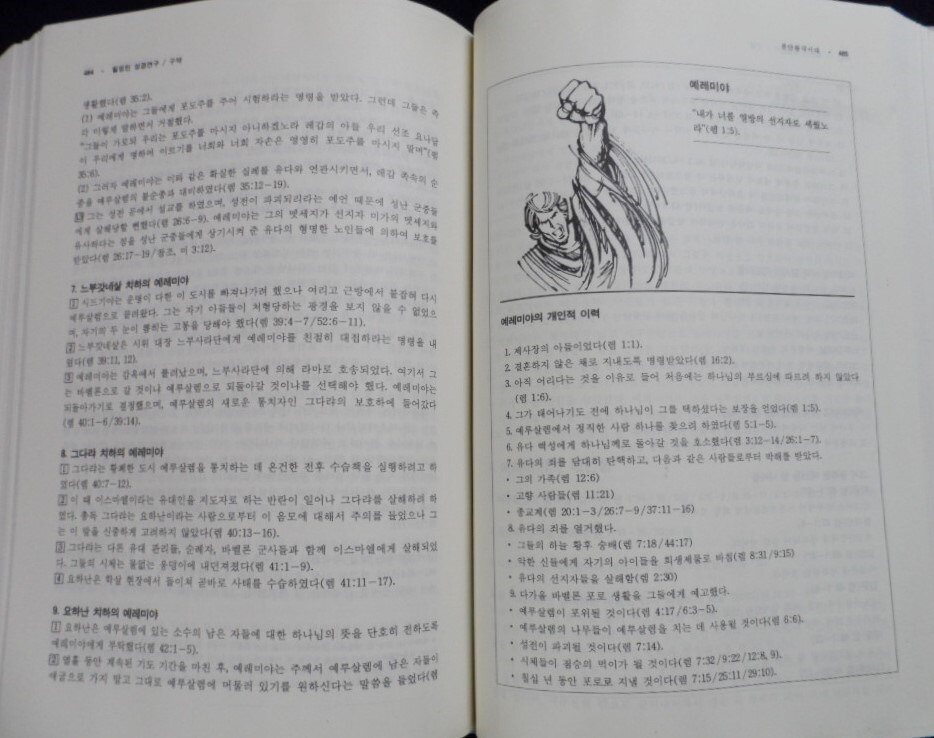 484 · 월밍턴 성경연구 / 구약
생활했다(렘 35:2).
(1) 예레미야는 그들에게 포도주를 주어 시험하라는 명령을 받았다. 그런데 그들은 즉
각 이렇게 말하면서 거절했다.
"그들이 가로되 우리는 포도주를 마시지 아니하겠노라 레갑의 아들 우리 선조 요나답
이 우리에게 명하여 이르기를 너희와 너희 자손은 영영히 포도주를 마시지 말며"(렘
35:6).
(2) 그러자 예레미야는 이와 같은 확실한 실례를 유다와 연관시키면서, 레갑 족속의 순
종을 예루살렘의 불순종과 대비하였다(렘 35:12-19).
그는 성전 문에서 설교를 하였으며, 성전이 파괴되리라는 예언 때문에 성난 군중들
에게 살해당할 뻔했다(렘 26:6-9). 예레미야는 그의 멧세지가 선지자 미가의 멧세지와
유사하다는 점을 성난 군중들에게 상기시켜 준 유다의 현명한 노인들에 의하여 보호를
받았다(렘 26:17-19/참조, 미 3:12).
7. 느부갓네살 치하의 예레미야
1 시드기야는 운명이 다한 이 도시를 빠져나가려 했으나 여리고 근방에서 붙잡혀 다시
예루살렘으로 끌려왔다. 그는 자기 아들들이 처형당하는 광경을 보지 않을 수 없었으
며, 자기의 두 눈이 뽑히는 고통을 당해야 했다(렘 39:4-7/52:6-11).
2 느부갓네살은 시위 대장 느부사라단에게 예레미야를 친절히 대접하라는 명령을 내
렸다(렘 39:11, 12).
3 예레미야는 감옥에서 풀려났으며, 느부사라단에 의해 라마로 호송되었다. 여기서 그
는 바벨론으로 갈 것이냐 예루살렘으로 되돌아갈 것이냐를 선택해야 했다. 예레미야는
되돌아가기로 결정했으며, 예루살렘의 새로운 통치자인 그다랴의 보호하에 들어갔다
(렘 40:1-6/39:14).
8. 그다랴 치하의 예레미야
1 그다랴는 황폐한 도시 예루살렘을 통치하는 데 온건한 전후 수습책을 실행하려고 하
였다(렘 40:7-12).
2 이 때 이스마엘이라는 유대인을 지도자로 하는 반란이 일어나 그다랴를 살해하려 하
였다. 총독 그다랴는 요하난이라는 사람으로부터 이 음모에 대해서 주의를 들었으나 그
는 이 말을 신중하게 고려하지 않았다(렘 40:13-16).
3 그다랴는 다른 유대 관리들, 순례자, 바벨론 군사들과 함께 이스마엘에게 살해되었
다. 그들의 시체는 물없는 웅덩이에 내던져졌다(렘 41:1-9).
4 요하난은 학살 현장에서 돌이켜 곧바로 사태를 수습하였다(렘 41:11-17).
9. 요하난 치하의 예레미야
1 요하난은 예루살렘에 있는 소수의 남은 자들에 대한 하나님의 뜻을 단호히 전하도록
예레미야에게 부탁했다(렘 42:1-5).
2 열흘 동안 계속된 기도 기간을 마친 후, 예레미야는 주께서 예루살렘에 남은 자들이
애굽으로 가지 말고 그대로 예루살렘에 머물러 있기를 원하신다는 말씀을 들었다(렘
485
예레미야
"내가 너를 열방의 선지자로 세웠노
라"(렘 1:5).
예레미야의 개인적 이력
1. 제사장의 아들이었다(렘 1:1).
2. 결혼하지 않은 채로 지내도록 명령받았다(렘 16:2).
3. 아직 어리다는 것을 이유로 들어 처음에는 하나님의 부르심에 따르려 하지 않았다
(렘 1:6).
4. 그가 태어나기도 전에 하나님이 그를 택하셨다는 보장을 얻었다(렘 1:5).
5. 예루살렘에서 정직한 사람 하나를 찾으려 하였다(렘 5:1-5).
6. 유다 백성에게 하나님께로 돌아갈 것을 호소했다(렘 3:12-14/26:1-7).
7. 유다의 죄를 담대히 탄핵하고, 다음과 같은 사람들로부터 박해를 받았다.
• 그의 가족(렘 12:6)
• 고향 사람들(렘 11:21)
• 종교계(렘 20:1-3/26:7-9/37:11-16)
8. 유다의 죄를 열거했다.
• 그들의 하늘 황후 숭배(렘 7:18/44:17)
• 악한 신들에게 자기의 아이들을 희생제물로 바침(렘 8:31/9:15)
• 유다의 선지자들을 살해함(렘 2:30)
9. 다가올 바벨론 포로 생활을 그들에게 예고했다.
• 예루살렘이 포위될 것이다(렘 4:17/6:3-5).
• 예루살렘의 나무들이 예루살렘을 치는 데 사용될 것이다(렘 6:6).
• 성전이 파괴될 것이다(렘 7:14).
• 시체들이 짐승의 먹이가 될 것이다(렘 7:32/9:22/12:8, 9).
• 칠십 년 동안 포로로 지낼 것이다(렘 7:15/25:11/29:10).